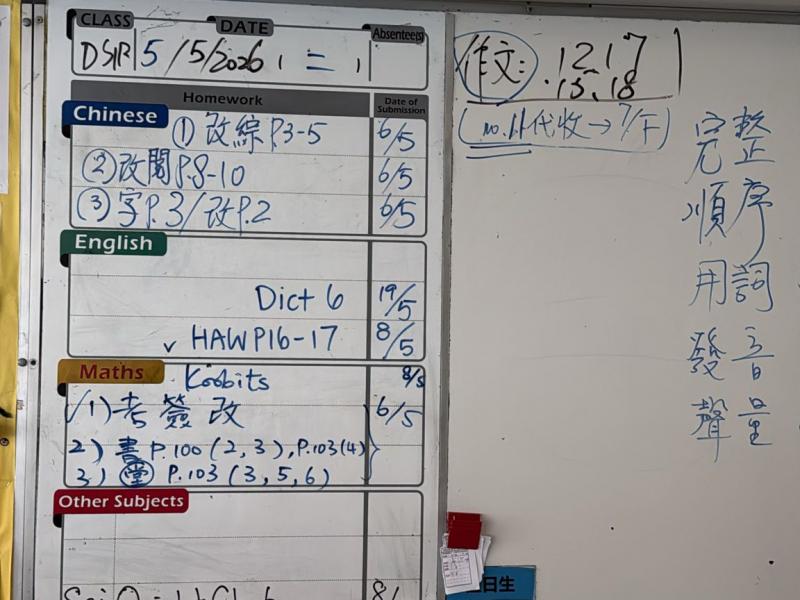 CLASS DATE Absentee(s)
5/5/2026 , 二 ,
Homework Date of Submission
Chinese
① 改綜P.3-5 6/5
② 改閱P.8-10 6/5
③ 字P.3/改P.2 6/5
English
Dict 6 19/5
✓ HAWP16-17 8/5
Maths Koobits 8/5
✓1) 考簽改 6/5
2) 書 P.100 (2,3), P.103(4)
3) 堂 P.103 (3,5,6)
Other Subjects
作文: 12 17
15、18
(no.11代收→7/下)
完整
順序
用詞
發音
聲量
日生